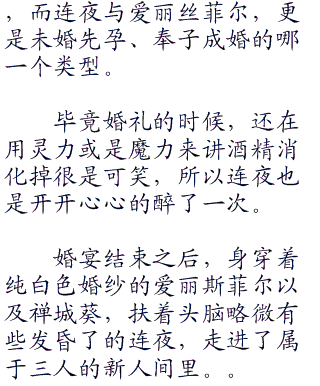 ，而连夜与爱丽丝菲尔，更
是未婚先孕、奉子成婚的哪
一个类型。
毕竟婚礼的时候，还在
用灵力或是魔力来讲酒精消
化掉很是可笑，所以连夜也
是开开心心的醉了一次。
婚宴结束之后，身穿着
纯白色婚纱的爱丽斯菲尔以
及禅城葵，扶着头脑略微有
些发昏了的连夜，走进了属
于三人的新人间里。。